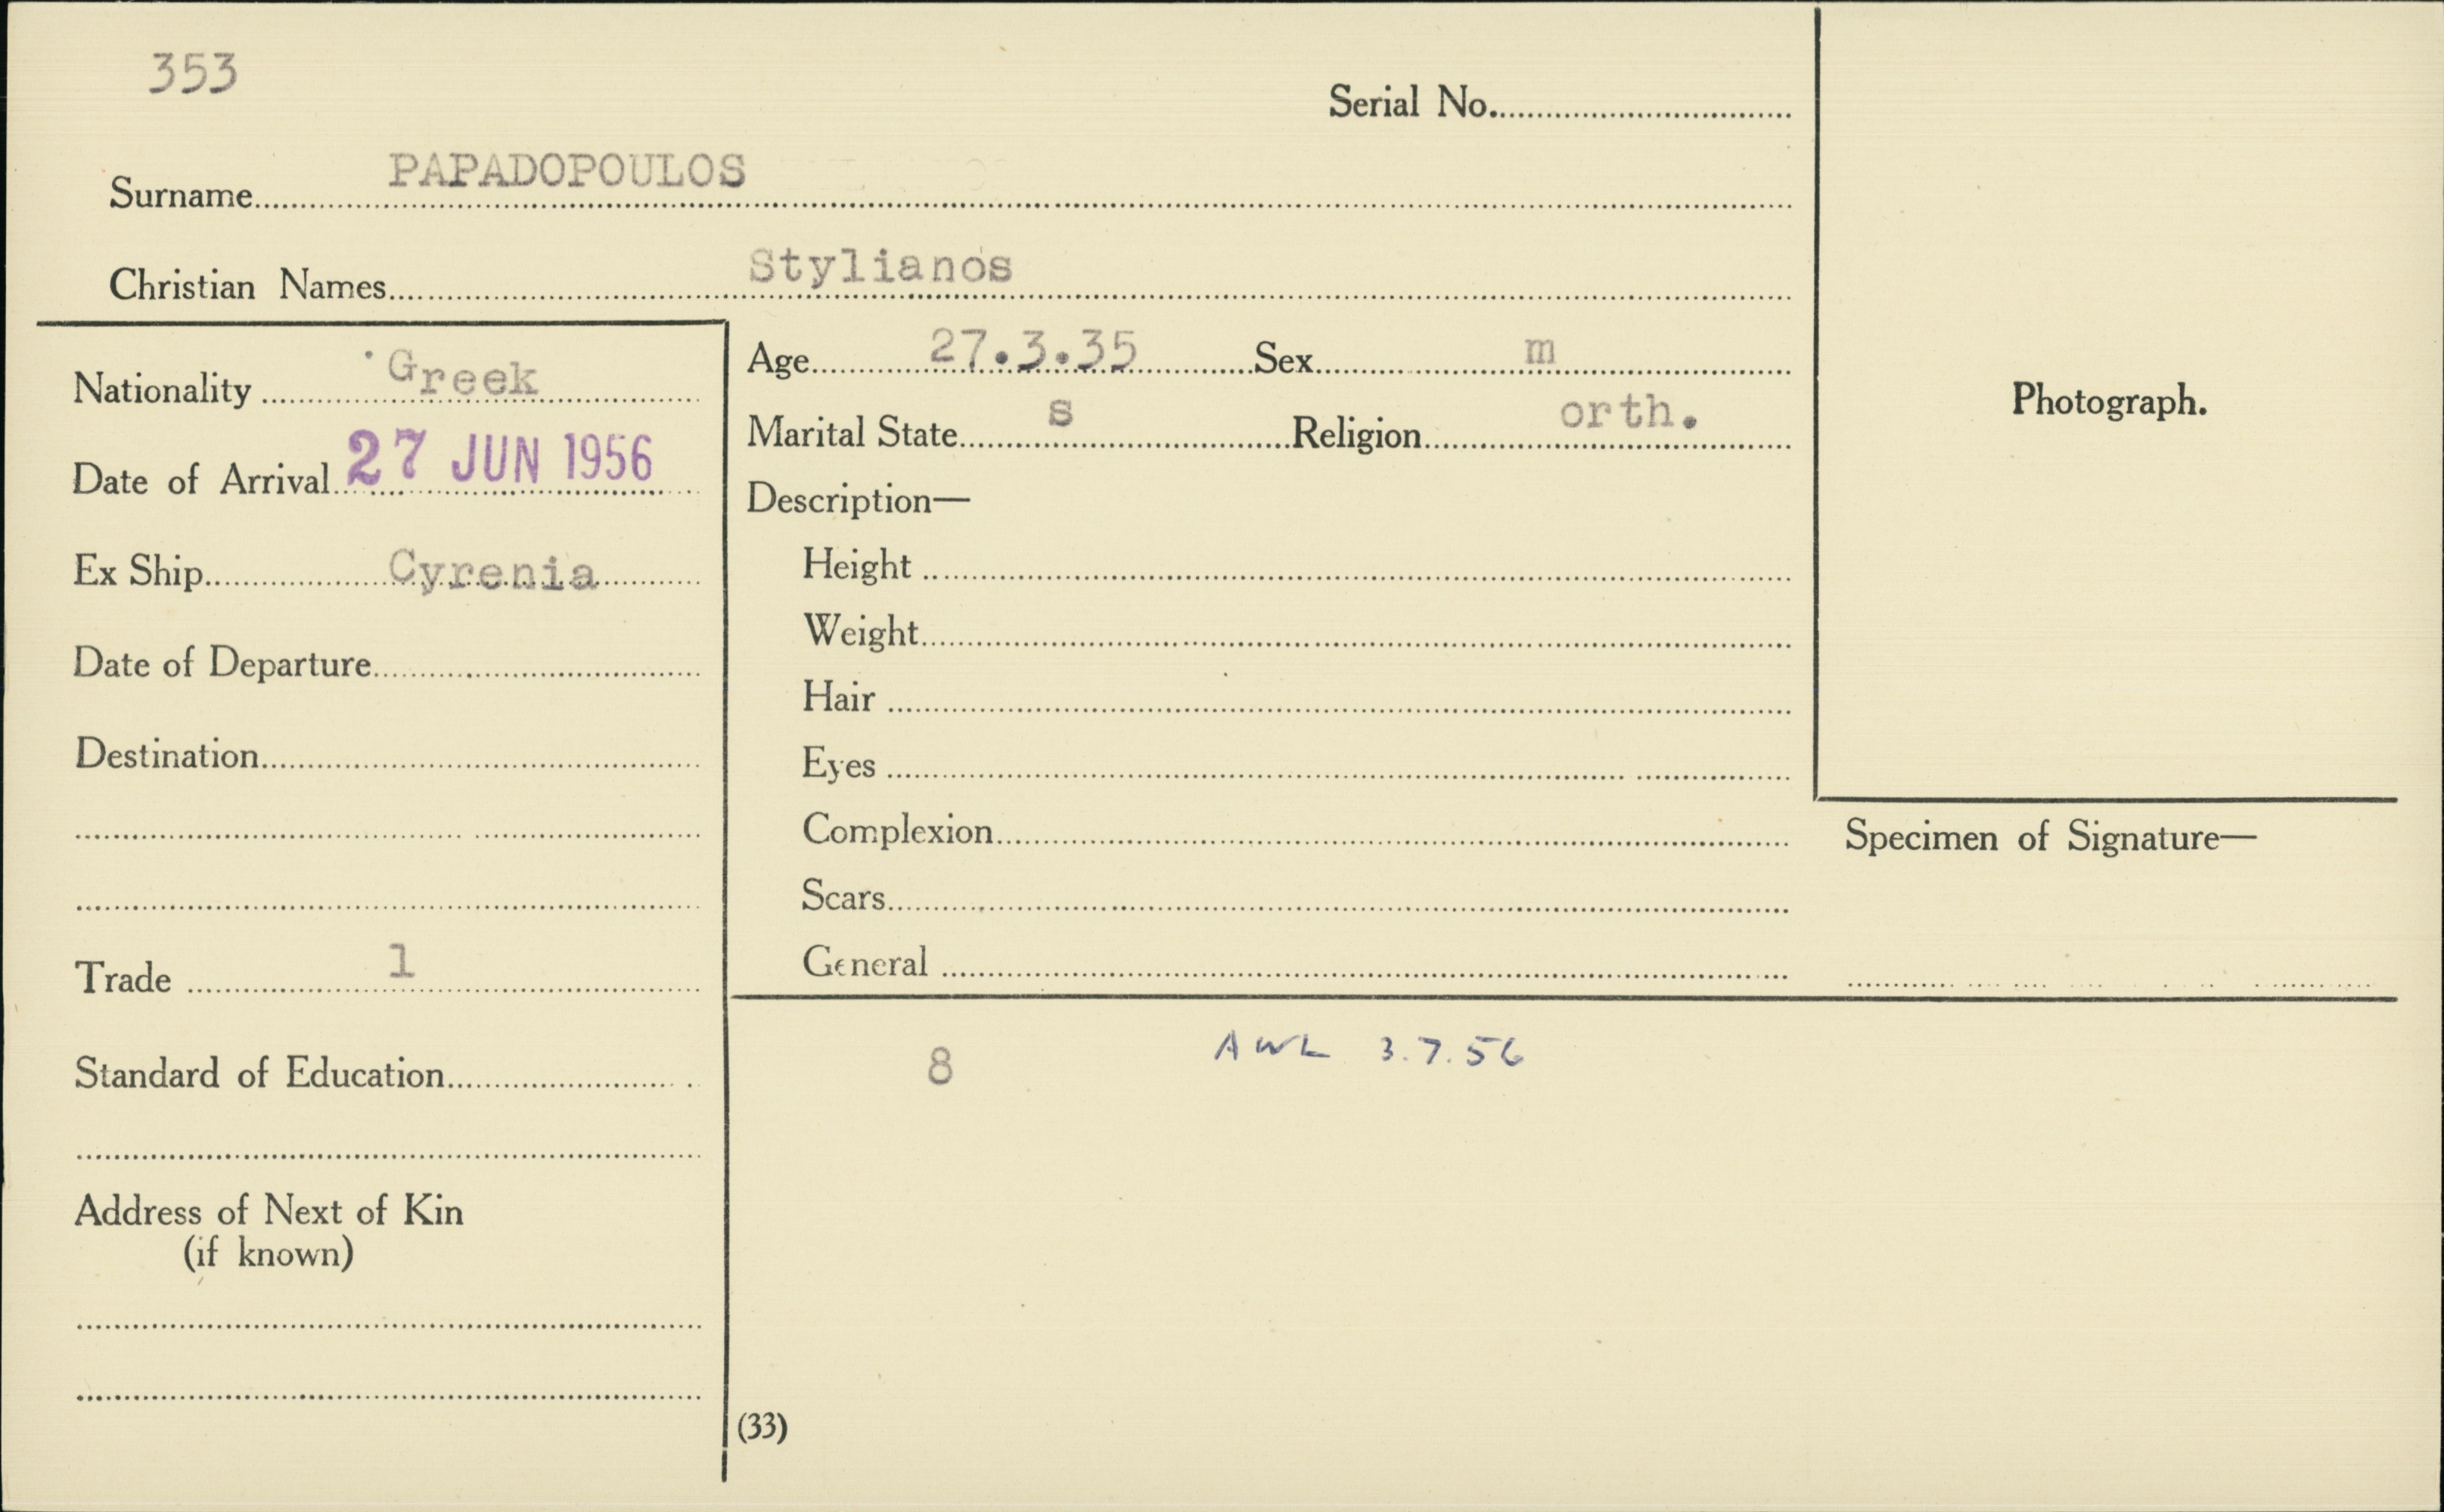 353
Serial No.
Surname PAPADOPOULOS
Christian Names Stylianos
Nationality Greek
Date of Arrival 27 JUN 1956
Ex Ship Cyrenia
Date of Departure
Destination
Trade 1
Standard of Education
Address of Next of Kin
(if known)
Age 27.3.35 Sex m
Marital State s Religion orth.
Description—
Height
Weight
Hair
Eyes
Complexion
Scars
General
Photograph.
Specimen of Signature—
8 AWL 3.7.56
(33)